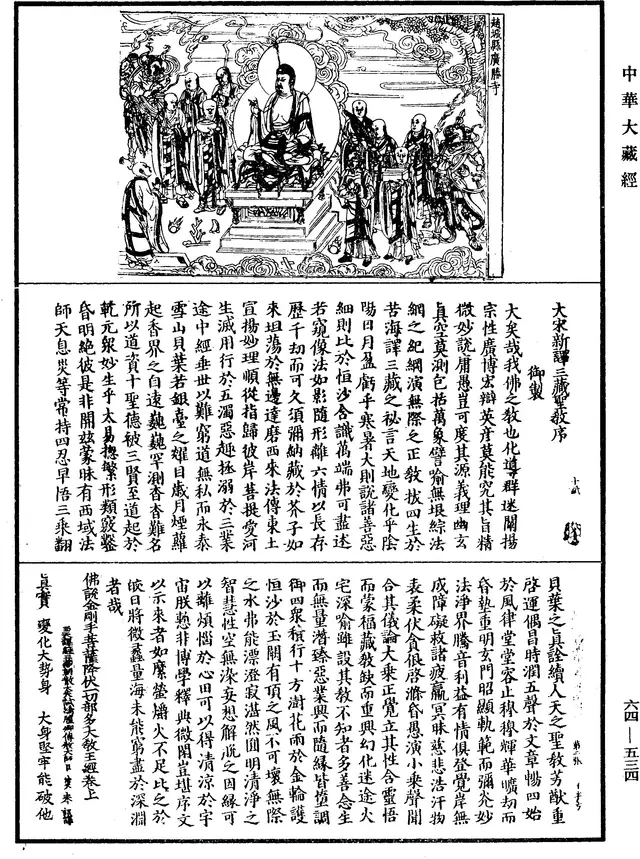 中華大藏經
趙城縣廣勝寺
大宋新譯三藏聖教序
御製
大矣哉我佛之教也化導群迷闡揚
宗性廣博宏辯英彥莫能究其旨精
微妙說庸愚豈可度其源義理幽玄
真空莫測包括萬象譬喻無垠綜法
網之紀綱演無際之正教拔四生於
苦海譯三藏之祕言天地變化乎陰
陽日月盈虧乎寒暑大則說諸善惡
細則比於恒沙含識萬端弗可盡述
若窺像法如影隨形離六情以長存
歷千劫而可久須彌納藏於芥子如
來坦蕩於無邊達磨西來法傳東土
宣揚妙理順從指歸彼岸菩提愛河
生滅用行於五濁惡趣拯溺於三業
途中經垂世以難窮道無私而永泰
雪山貝葉若銀臺之耀目歲月煙蘿
起香界之自遠巍巍罕測杳杳難名
所以道資十聖德被三賢至道起於
乾元衆妙生乎太易摠繁形類竅鑿
昏明絕彼是非開茲蒙昧有西域法
師天息災等常持四忍早悟三乘翻
貝葉之真詮續人天之聖教芳猷重
啓運偶昌時潤五聲於文章暢四始
於風律堂堂容止穆穆輝華曠劫而
昏墊重明玄門昭顯軌範而彌光妙
法淨界騰音利益有情俱登覺岸無
成障礙救諸疲羸冥昧慈悲浩汗物
表柔伏貪很啓滌昏愚演小乘聲聞
合其儀論大乘正覺立其性含靈悟
而蒙福藏教缺而重興幻化迷途火
宅深喻雖設其教不知者多善念生
而無量潛臻惡業興而隨緣皆墮調
御四衆積行十方澍花雨於金輪護
恒沙於玉闕有頂之風不可壞無際
之水弗能漂澄寂湛然圓明清淨之
智慧性空無染妄想解脫之因緣可
以離煩惱於心田可以得清涼於宇
宙朕慙非博學釋典微閑豈堪序文
以示來者如縻螢爝火不足比之於
皎日將微蠡量海未能窮盡於深淵
者哉
佛說金剛手菩薩降伏一切部多大教王經卷上
真實 變化大勢身 大身堅牢能破他
六四—五三四